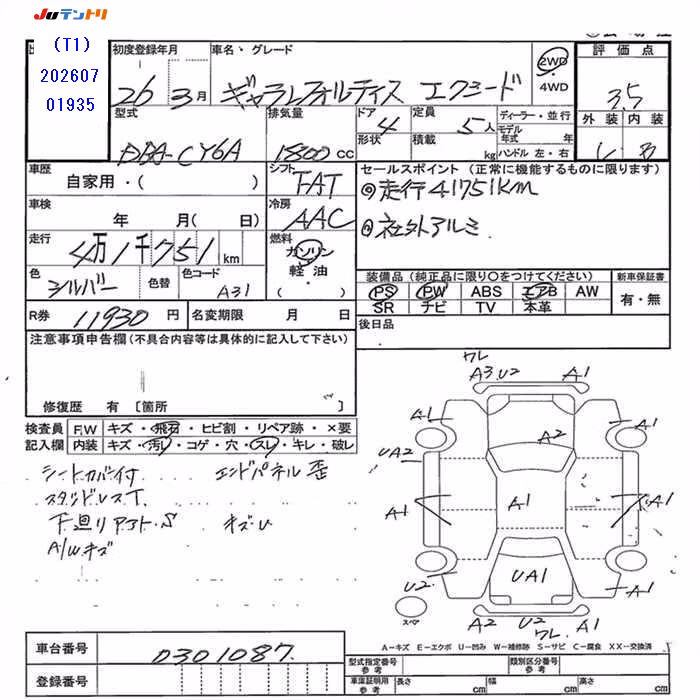 JUテントリ
(T1)
202607
01935
初度登録年月
26年 3月
車名・グレード
ギャラン フォルティス エクシード
2WD
・
4WD
評価点
3.5
外装 内装
型式
DBA-CY6A
排気量
1800 cc
ドア 4
形状
定員 5人
積載 kg
ディーラー・並行
モデル年式 年
ハンドル 左・右
車歴
自家用・( )
シフト
FAT
セールスポイント (正常に機能するものに限ります)
◎走行41751km
◎社外アルミ
車検
年 月( 日)
冷房
AAC
走行
4万1千751km
燃料
ガソリン
軽油
( )
色
シルバー
色替
色コード
A31
装備品(純正品に限り○をつけてください)
PS PW ABS エアB AW
SR ナビ TV 本革
新車保証書
有・無
R券 11930円
名変期限 月 日
後日品
注意事項申告欄(不具合内容等は具体的に記入して下さい)
修復歴 有 〔箇所 〕
検査員
記入欄
F.W キズ・飛石・ヒビ割・リペア跡・×要
内装 キズ・汚レ・コゲ・穴・スレ・キレ・破レ
シートカバー付 エンドパネル歪
スタッドレスT.
下廻りアフト・S キズ・U
A/Wキズ
ワレ
A3.U2 A1
A1 A1
A2
UA2
A1 A1 A1
UA1
U2 A1
スペア
A2 U2 A1
ワレ
A-キズ E-エクボ U-凹み W-補修跡 S-サビ C-腐食 XX-交換済
車台番号 0301087
登録番号
型式指定番号
参考
類別区分番号
参考
車庫証明用
参考
長さ cm 幅 cm 高さ cm